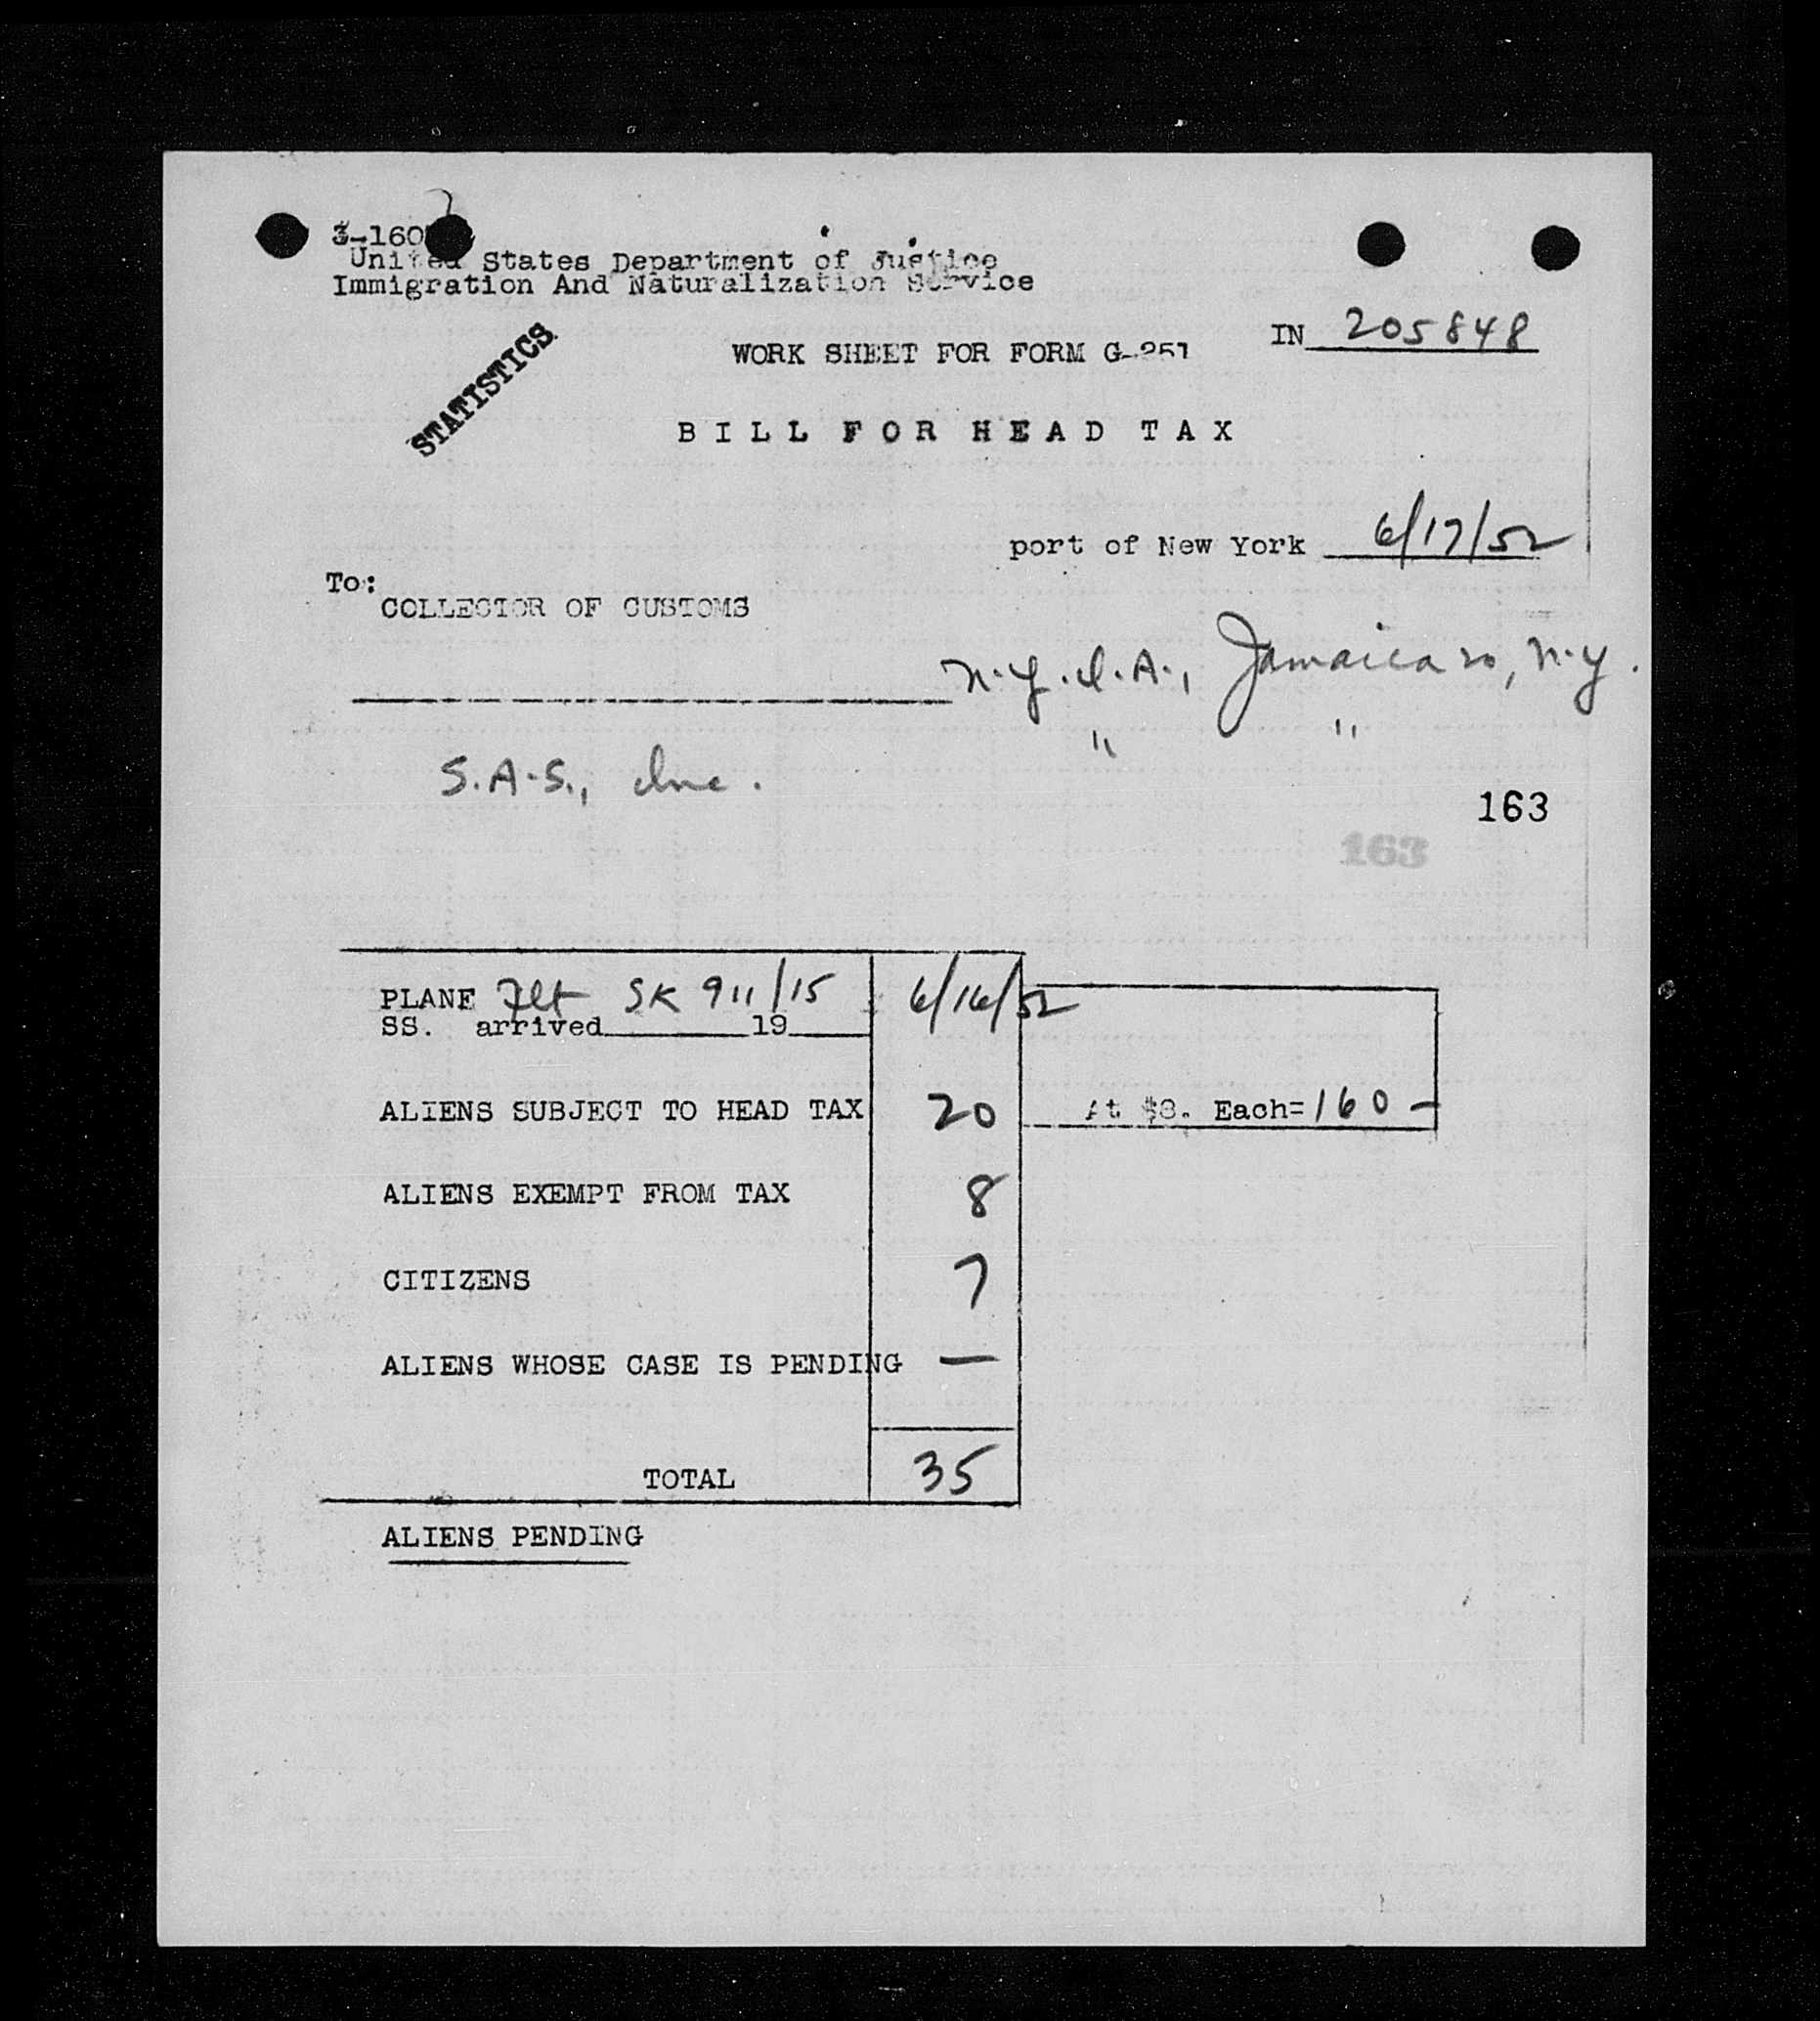 3-160
United States Department of Justice
Immigration And Naturalization Service
STATISTICS
IN 205848
WORK SHEET FOR FORM G-251
BILL FOR HEAD TAX
port of New York 6/17/52
To:
COLLECTOR OF CUSTOMS
N.Y.I.A., Jamaica 20, N.Y.
" "
S.A.S., Inc.
163
163
PLANE Flt SK 911/15 6/16/52
SS. arrived 19
ALIENS SUBJECT TO HEAD TAX 20 At $8. Each= 160 -
ALIENS EXEMPT FROM TAX 8
CITIZENS 7
ALIENS WHOSE CASE IS PENDING —
TOTAL 35
ALIENS PENDING